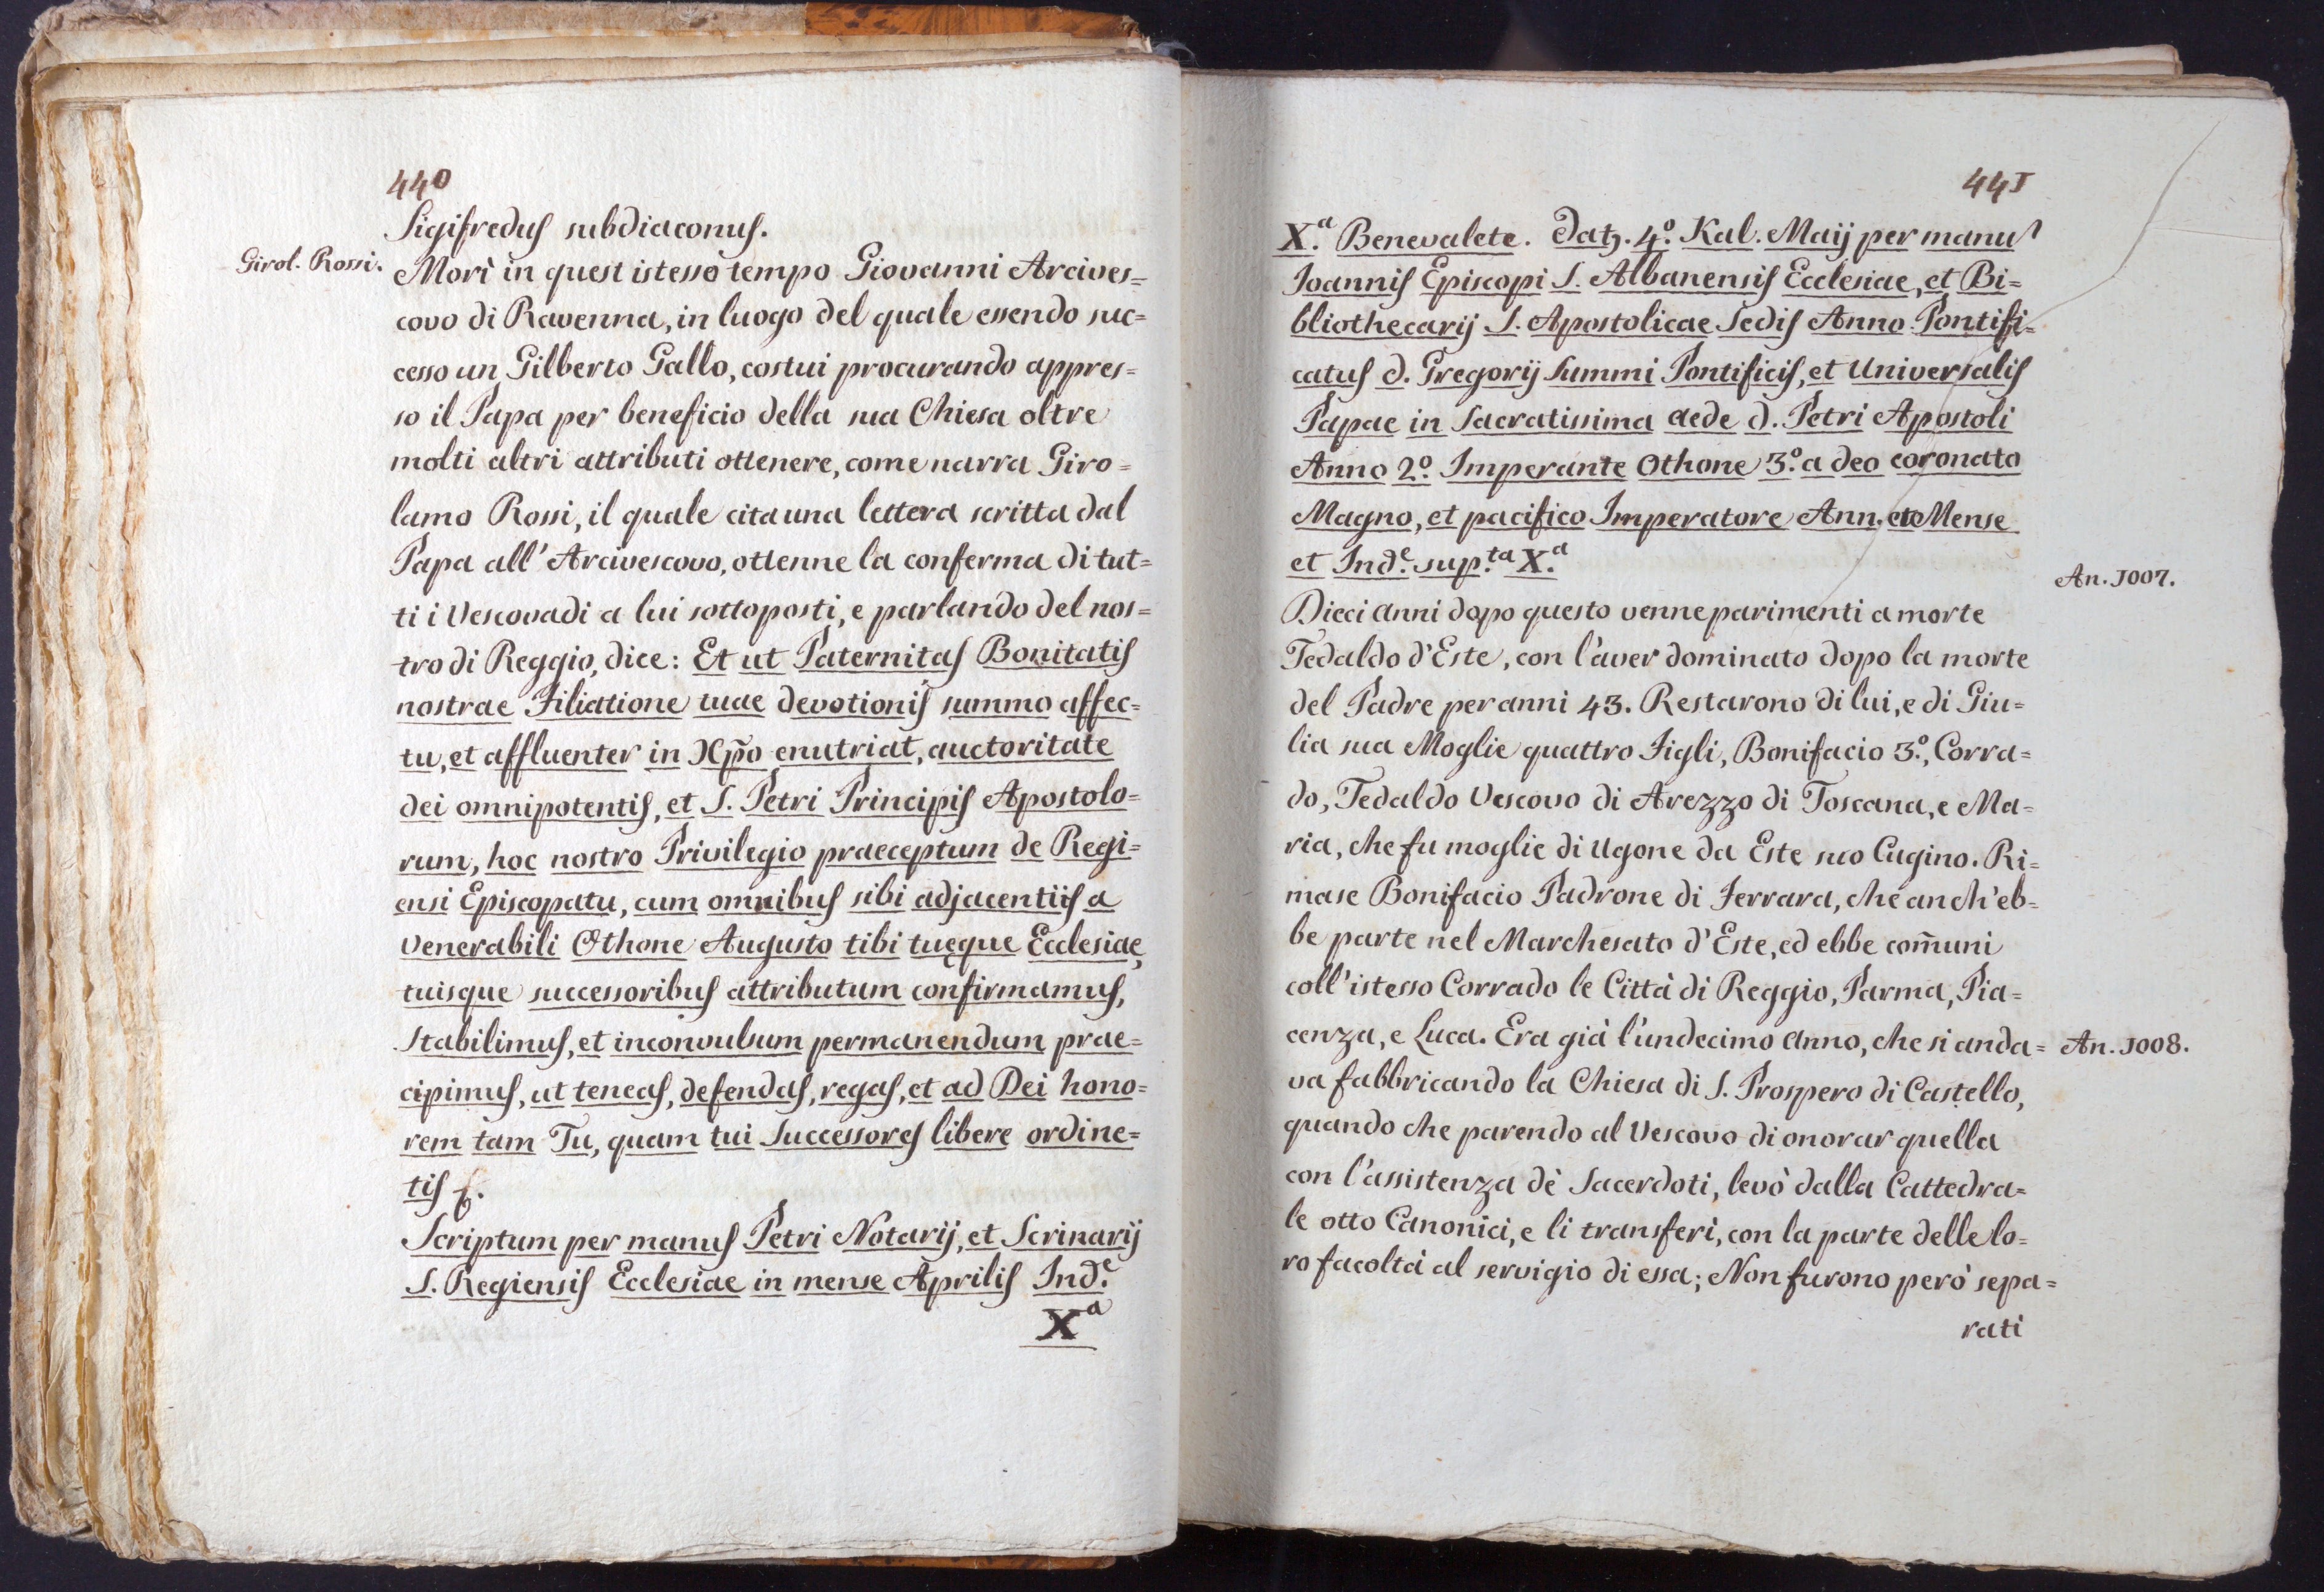 440
Sigifredus subdiaconus.
Girol. Rossi.
Morì in quest istesso tempo Giovanni Arcives=
covo di Ravenna, in luogo del quale essendo suc=
cesso un Gilberto Gallo, costui procurando appres=
so il Papa per beneficio della sua Chiesa oltre
molti altri attributi ottenere, come narra Giro=
lamo Rossi, il quale cita una lettera scritta dal
Papa all' Arcivescovo, ottenne la conferma di tut=
ti i Vescovadi a lui sottoposti, e parlando del nos=
tro di Reggio, dice: Et ut Paternitas Bonitatis
nostrae Filiatione tuae devotionis summo affec=
tu, et affluenter in Xp̃o enutriat, auctoritate
dei omnipotentis, et S. Petri Principis Apostolo=
rum, hoc nostro Privilegio praeceptum de Regi=
ensi Episcopatu, cum omnibus sibi adjacentiis a
venerabili Othone Augusto tibi tuęque Ecclesiae,
tuisque successoribus attributum confirmamus,
stabilimus, et inconvulsum permanendum prae=
cipimus, ut teneas, defendas, regas, et ad Dei hono=
rem tam Tu, quam tui Successores libere ordine=
tis
Scriptum per manus Petri Notarij, et Scrinarij
S. Regiensis Ecclesiae in mense Aprilis Ind.e
X.a
441
X.a Benevalete. Datz. 4.o Kal. Maij per manus
Joannis Episcopi S. Albanensis Ecclesiae, et Bi=
bliothecarij S. Apostolicae Sedis Anno Pontifi=
catus d. Gregorij Summi Pontificis, et Universalis
Papae in Sacratissima aede d. Petri Apostoli
Anno 2.o Imperante Othone 3.o a deo coronato
Magno, et pacifico Imperatore Ann. et Mense
et Ind.e sup.ta X.a
An. 1007.
Dieci anni dopo questo venne parimenti a morte
Tedaldo d'Este, con l'aver dominato dopo la morte
del Padre per anni 43. Restarono di lui, e di Giu=
lia sua Moglie quattro Figli, Bonifacio 3.o, Corra=
do, Tedaldo Vescovo di Arezzo di Toscana, e Ma=
ria, che fu moglie di Ugone da Este suo Cugino. Ri=
mase Bonifacio Padrone di Ferrara, che anch'eb=
be parte nel Marchesato d'Este, ed ebbe com̃uni
coll'istesso Corrado le Città di Reggio, Parma, Pia=
cenza, e Luca. Era già l'undecimo anno, che si anda=
An. 1008.
va fabbricando la Chiesa di S. Prospero di Castello,
quando che parendo al Vescovo di onorar quella
con l'assistenza dè Sacerdoti, levò dalla Cattedra=
le otto Canonici, e li transferì, con la parte delle lo=
ro facoltà al servigio di essa; Non furono però sepa=
rati